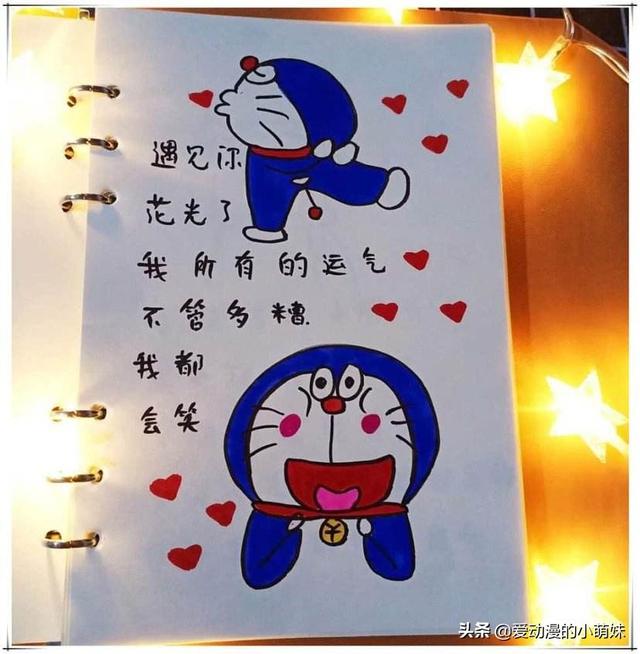 遇见你
花光了
我所有的运气
不管多糟
我都
会笑
头条 @爱动漫的小萌妹